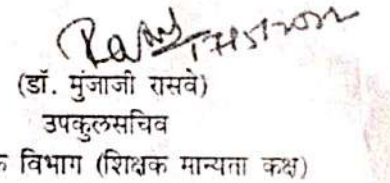 (डॉ. मुंजाजी रासवे)
उपकुलसचिव
विभाग (शिक्षक मान्यता कक्ष)